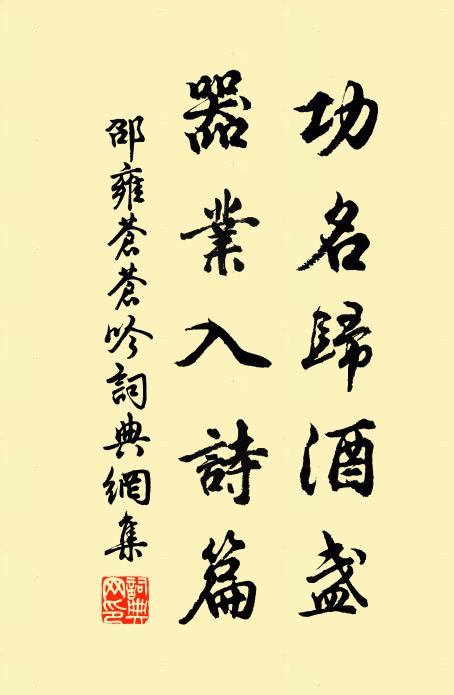 功名歸酒盞
器業入詩篇
邵雍蒼蒼吟詞典網集
詞典網印